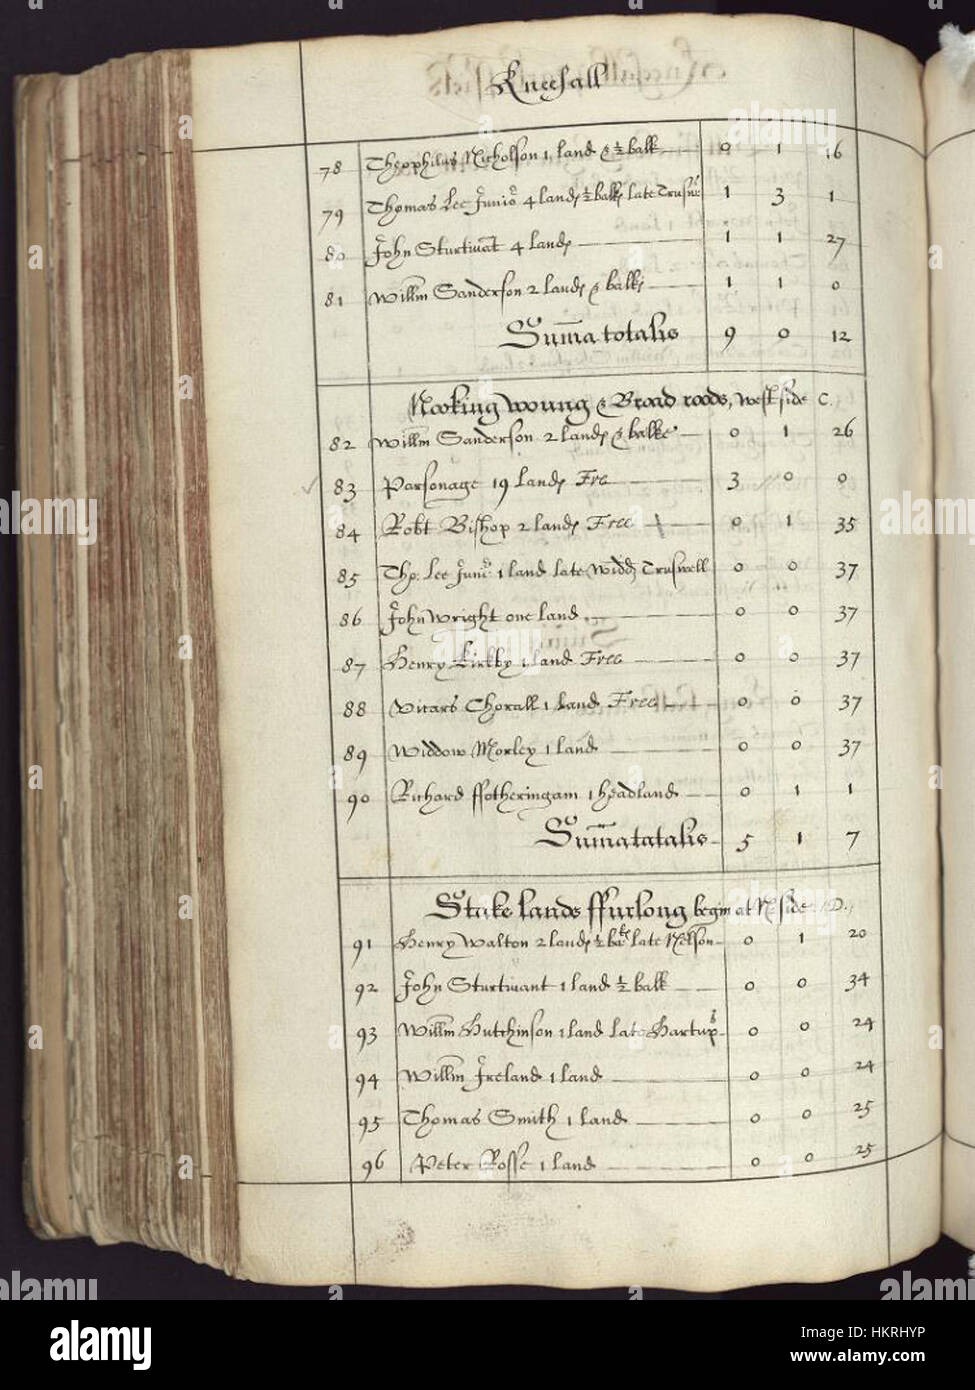 Kneesall
78 Theophilus Nicholson 1 land & ½ balk 0 1 16
79 Thomas Lee Junior 4 lands ½ balk late Truswell 1 3 1
80 John Sturtivant 4 lands 1 1 27
81 Willm Sanderson 2 lands & balks 1 1 0
Summa totalis 9 0 12
Nooking woung & Broad roods, west side C.
82 Willm Sanderson 2 lands & balke 0 1 26
83 Parsonage 19 lands Free 3 0 0
84 Robt Bishop 2 lands Free 0 1 35
85 Tho. Lee Junr 1 land late Widd Truswell 0 0 37
86 John Wright one land 0 0 37
87 Henry Kirkby 1 land Free 0 0 37
88 Vicars Chorall 1 land Free 0 0 37
89 Widdow Morley 1 land 0 0 37
90 Richard ffotheringam 1 headland 0 1 1
Summa tatalis 5 1 7
Stuke lands ffurlong begin at N side D.
91 Henry Walton 2 lands ½ balk late Nelson 0 1 20
92 John Sturtivant 1 land ½ balk 0 0 34
93 Willm Hutchinson 1 land late Hartups 0 0 24
94 Willm Ireland 1 land 0 0 24
95 Thomas Smith 1 land 0 0 25
96 Peter Rosse 1 land 0 0 25
alamy
Image ID: HKRHYP
www.alamy.com